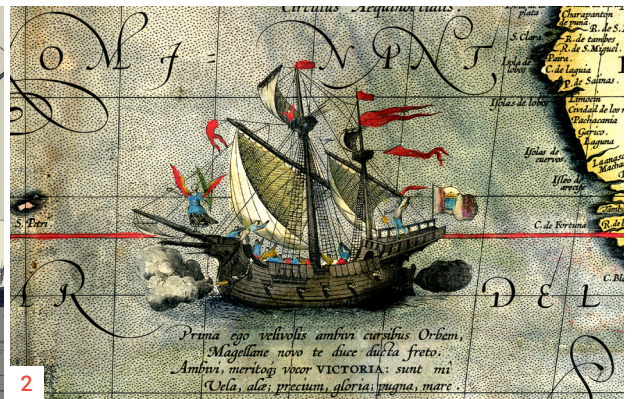 Circulus Aequinoctialis.
OMI-
NANT,
plata
Charapanton
de puna
R. de S.
S. Clara.
R. de tambes
R. de S. Miguel.
Isola de lobos
Paita.
C. de laguia
P. de Salinas.
Isolas de lobos
Limocin
Cividad de los
Pachacania
Garico.
Laguna
Isolas de cuervos.
Isleo de arecife
S. Petri
C. de Fortuna
C. Bla
AR
DEL
Prima ego velivolis ambivi cursibus Orbem,
Magellane novo te duce ducta freto.
Ambivi, meritoq; vocor VICTORIA: sunt mi
Vela, alæ; precium, gloria; pugna, mare.
2